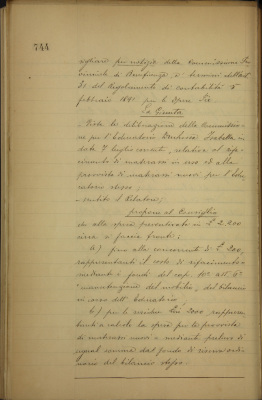 744
vigilare per notizia della Commissione Pro
vinciale di Beneficenza, a termini dell'art.
31 del Regolamento di contabilità 5
febbraio 1891 per le Opere Pie
La Giunta
- Vista la deliberazione della Commissio
ne per l'Educatorio Duchessa Isabella in
data 7 luglio corrente, relativa al
di materassi in uso ed alla
provvista di materassi nuovi per l'Edu
catorio stesso;
- sentito il Relatore;
propone al Consiglio
che alla spesa preventivata in £ 2.200
circa si faccia fronte:
a) fino alla concorrenza di £ 200,
rappresentanti il costo di
mediante i fondi del cap. art. 6°
"manutenzione del mobilio" del bilancio
in corso dell'Educatorio;
b) per le residue Lire 2000 rappresen
tanti a calcolo la spesa per la provvista
di materassi nuovi, mediante prelievo di
egual somma dal fondo di riserva ordi
nario del bilancio stesso.